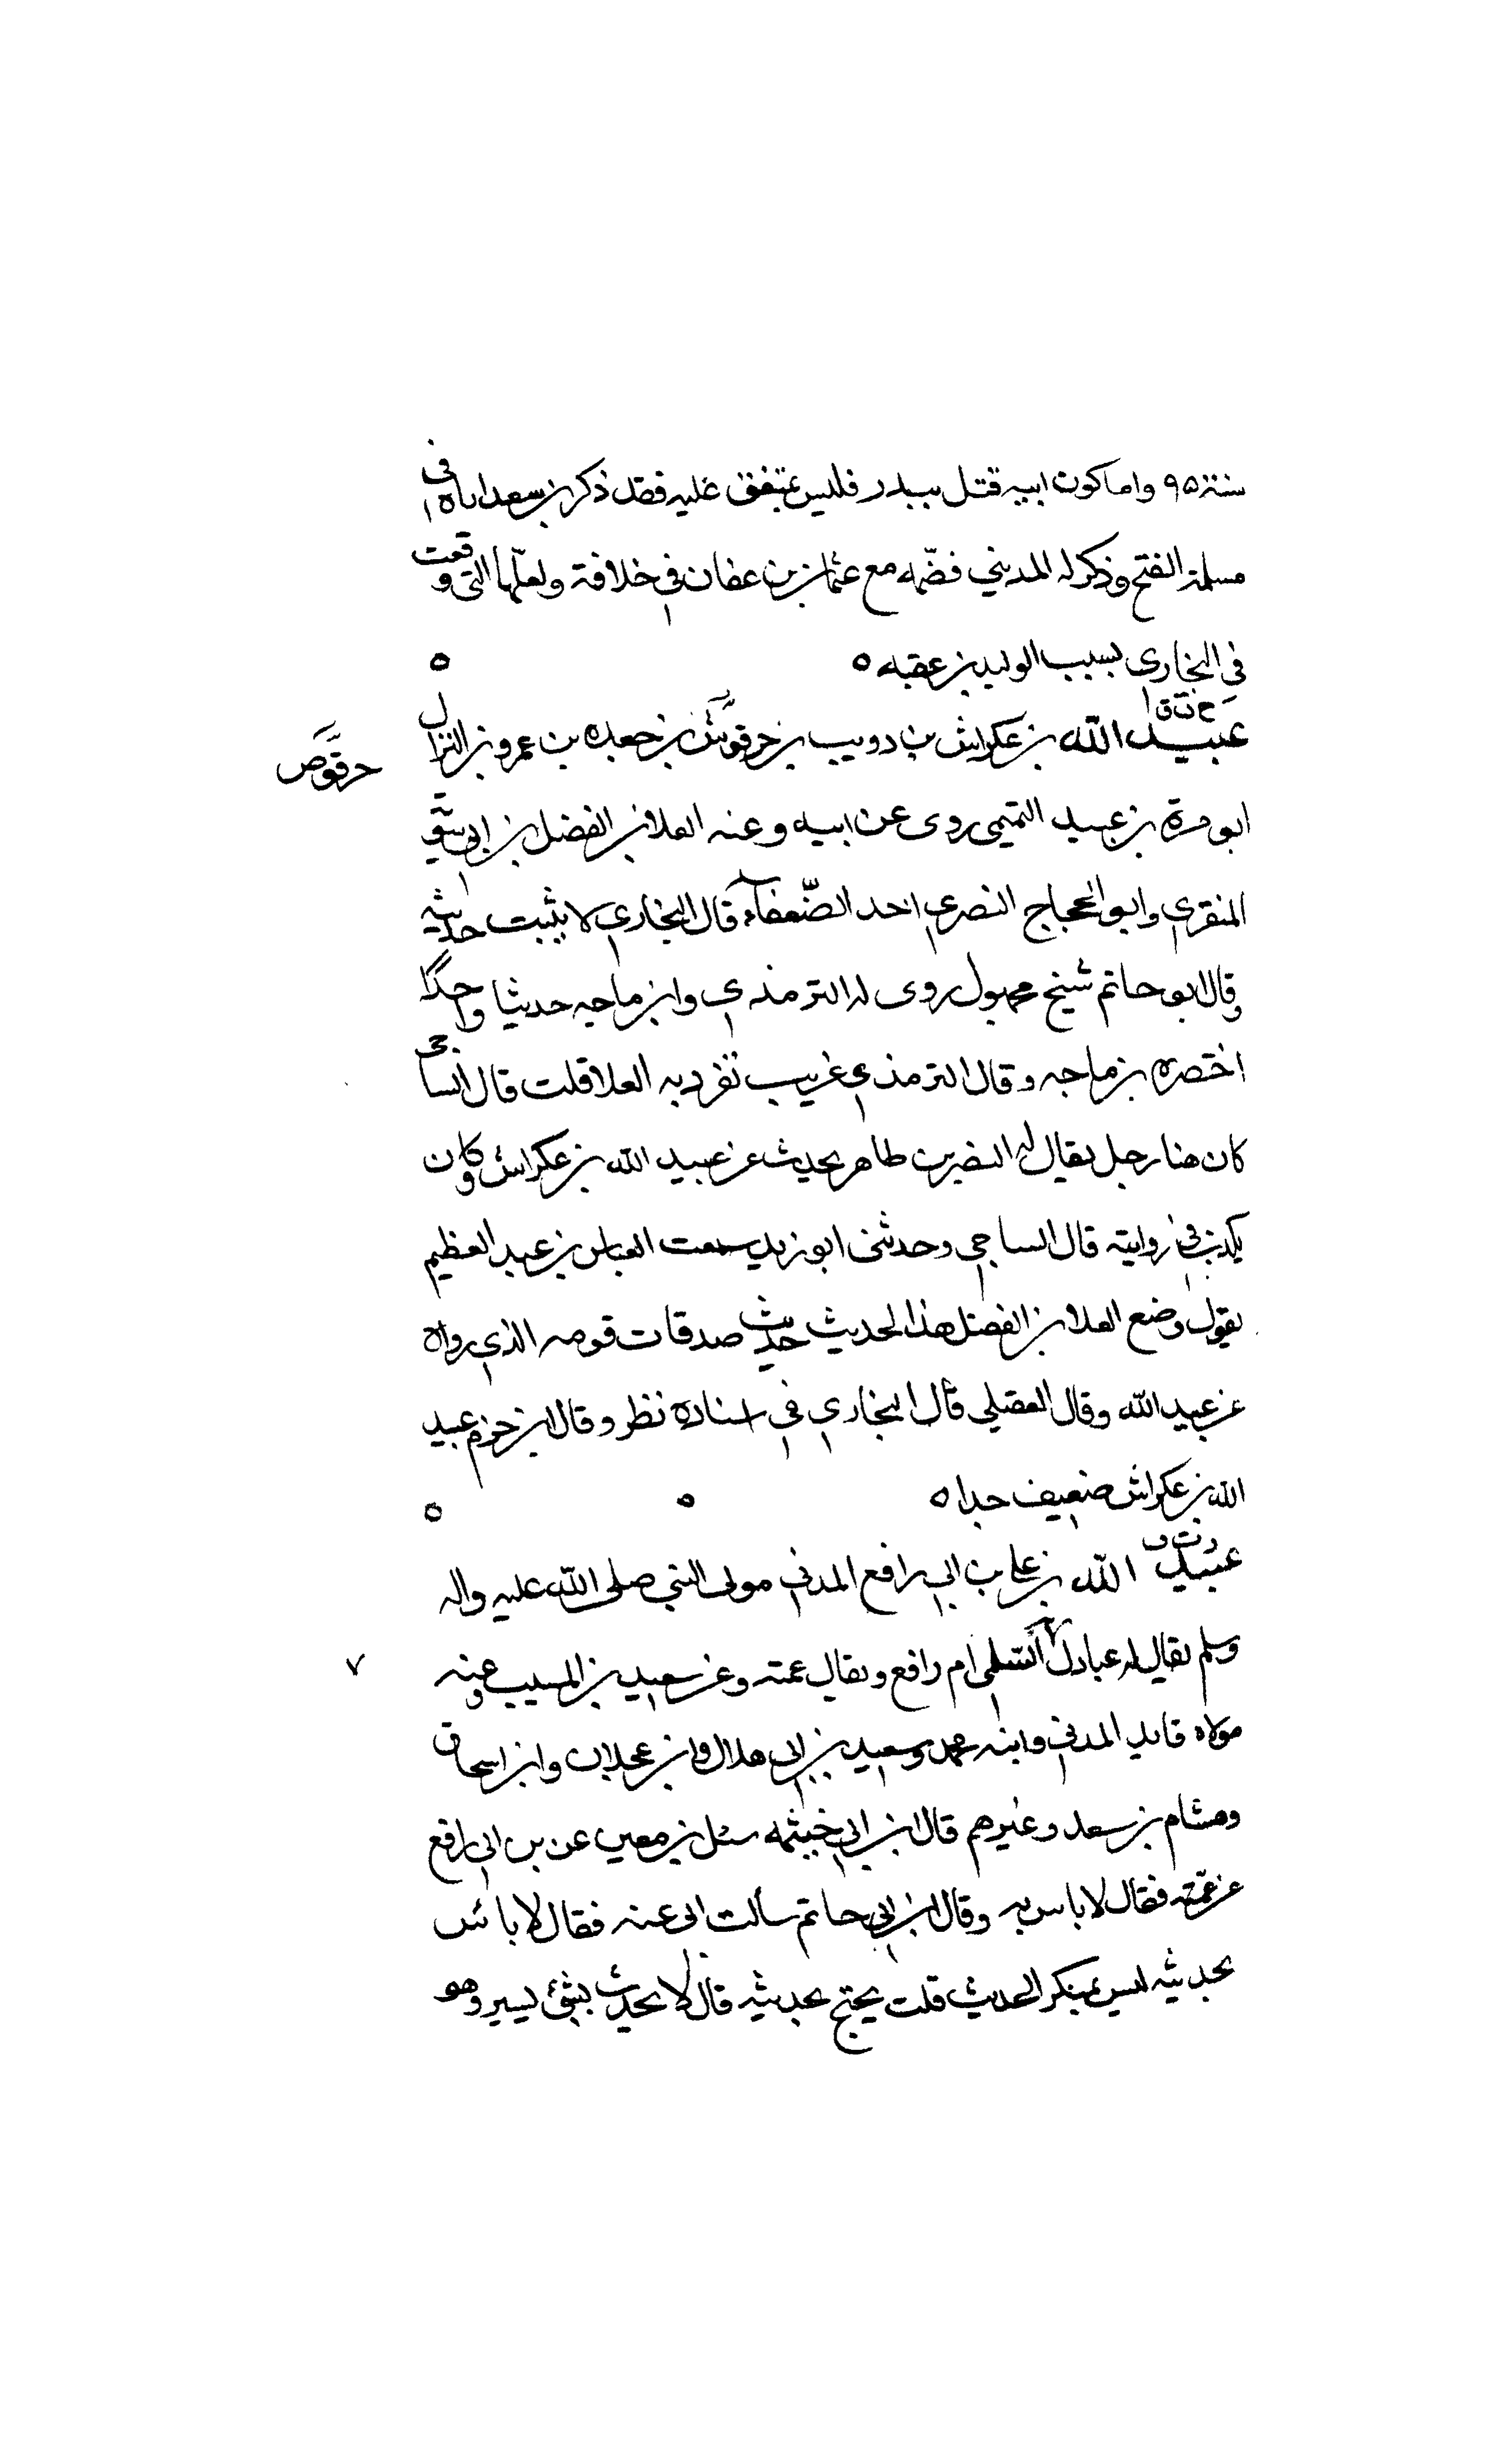 سنة ٩٥ واما كون ابيه قتل ببدر فليس بمتفق عليه فقد ذكر بن سعد اباه في
مسلمة الفتح وذكر له المديني قصّه مع عثمان بن عفان في خلافة ولعلّها التي وقعت
في البخاري بسبب الوليد بن عقبه ه ه
ت ق
عبيد الله بن عكراش بن دويب بن حرقوش بن جعده بن عمرو بن النزال
حرقوص
ابو مرة بن عبيد التميمي روى عن ابيه وعنه العلا بن الفضل بن ابي سويه
المنقري وابو الحجاج النضري احد الضّعفاء قال البخاري لا يثبت حديثه
وقال ابو حاتم شيخ مجهول روى له الترمذي وابن ماجه حديثا واحدًا
اختصره بن ماجه وقال الترمذي غريب تفرد به العلا قلت قال الساجي
كان هنا رجل يقال له النضر بن طاهر يحدث عن عبيد الله بن عكراش وكان
يكذب في روايته قال الساجي وحدثني ابو زيد سمعت العباس بن عبد العظيم
يقول وضع العلا بن الفضل هذا الحديث حديث صدقات قومه الذي رواه
عن عبيد الله وقال العقيلي قال البخاري في اسناده نظر وقال ابن حزم عبيد
الله بن عكراش ضعيف جدا ه ه ه
د ت ق
عبيد الله بن علي بن ابي رافع المدني مولى النبي صلى الله عليه واله
وسلم يقال له عبادل سلمى ام رافع ويقال عمته وعن سعيد بن المسيب وعنه
٧
مولاه قايد المدني وابنه محمد وسعيد بن ابي هلال وابن عجلان وابن اسحاق
وهشام بن سعد وغيرهم قال ابن ابي خيثمه سئل بن معين عن بن ابي رافع
عن عمّته فقال لا باس به وقال ابن ابي حاتم سألت ابي عنه فقال لا بائس
بحديثه ليس بمنكر الحديث قلت يحتج بحديثه قال لا يحدث بشئ يسير وهو